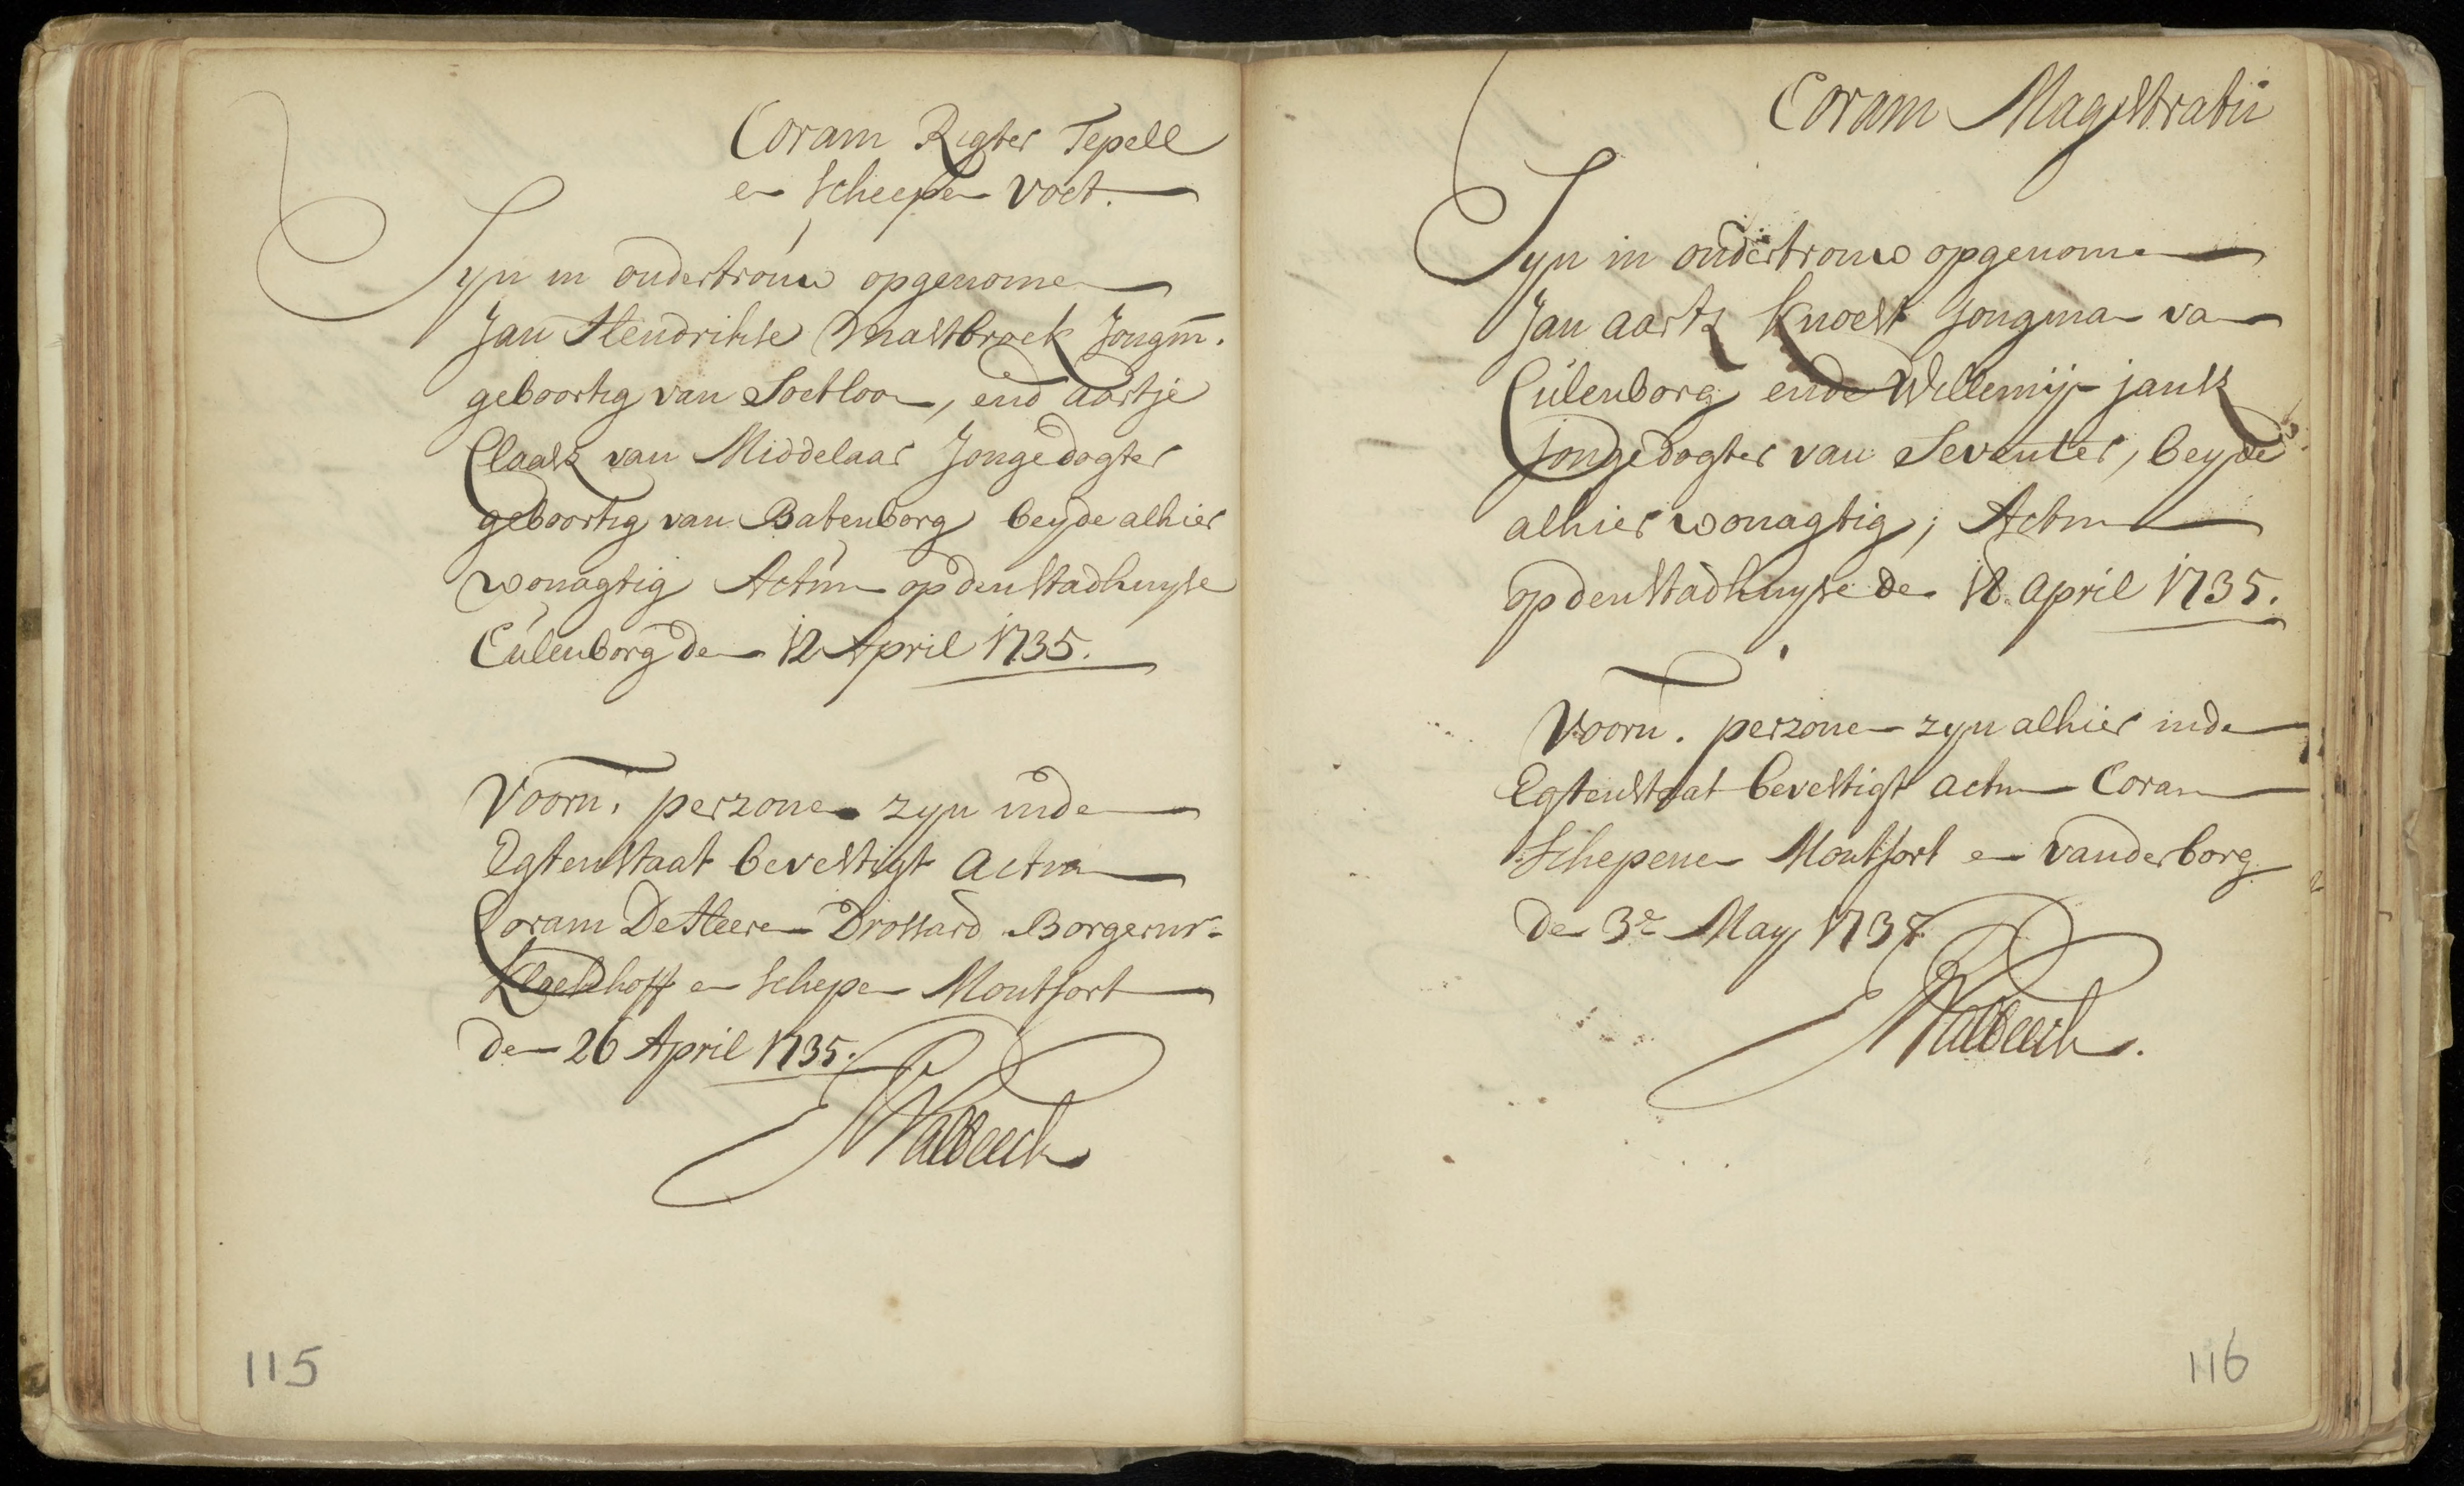 Coram Rigter Tepell
en scheepen Voet.
Syn in ondertrouw opgenomen
Jan Hendrikse Mastbroek Jongm.
geboortig van Soetloon, end Aartje
Claasz van Middelaar Jongedogter
geboortig van Batenborg beyde alhier
wonagtig Actum op den stadhuyse
Culenborg den 12 April 1735.
Voorn. perzonen zyn inden
Egtenstaat bevestigt Actum
Coram De Heeren Drossard Borgermr.
en Schepen Montfort
den 26 April 1735.
115
Coram Magistratu
Syn in ondertrouw opgenomen
Jan aartz Knoest Jongman van
Culenborg ende Willemijn jansz
jongedogter van Deventer, beyde
alhier wonagtig; Actum
op den stadhuyse den 18 April 1735.
Voorn. perzonen zyn alhier inden
Egtenstaat bevestigt actum Coram
Schepenen Montfort en vanderborg
den 3e May 1735
116